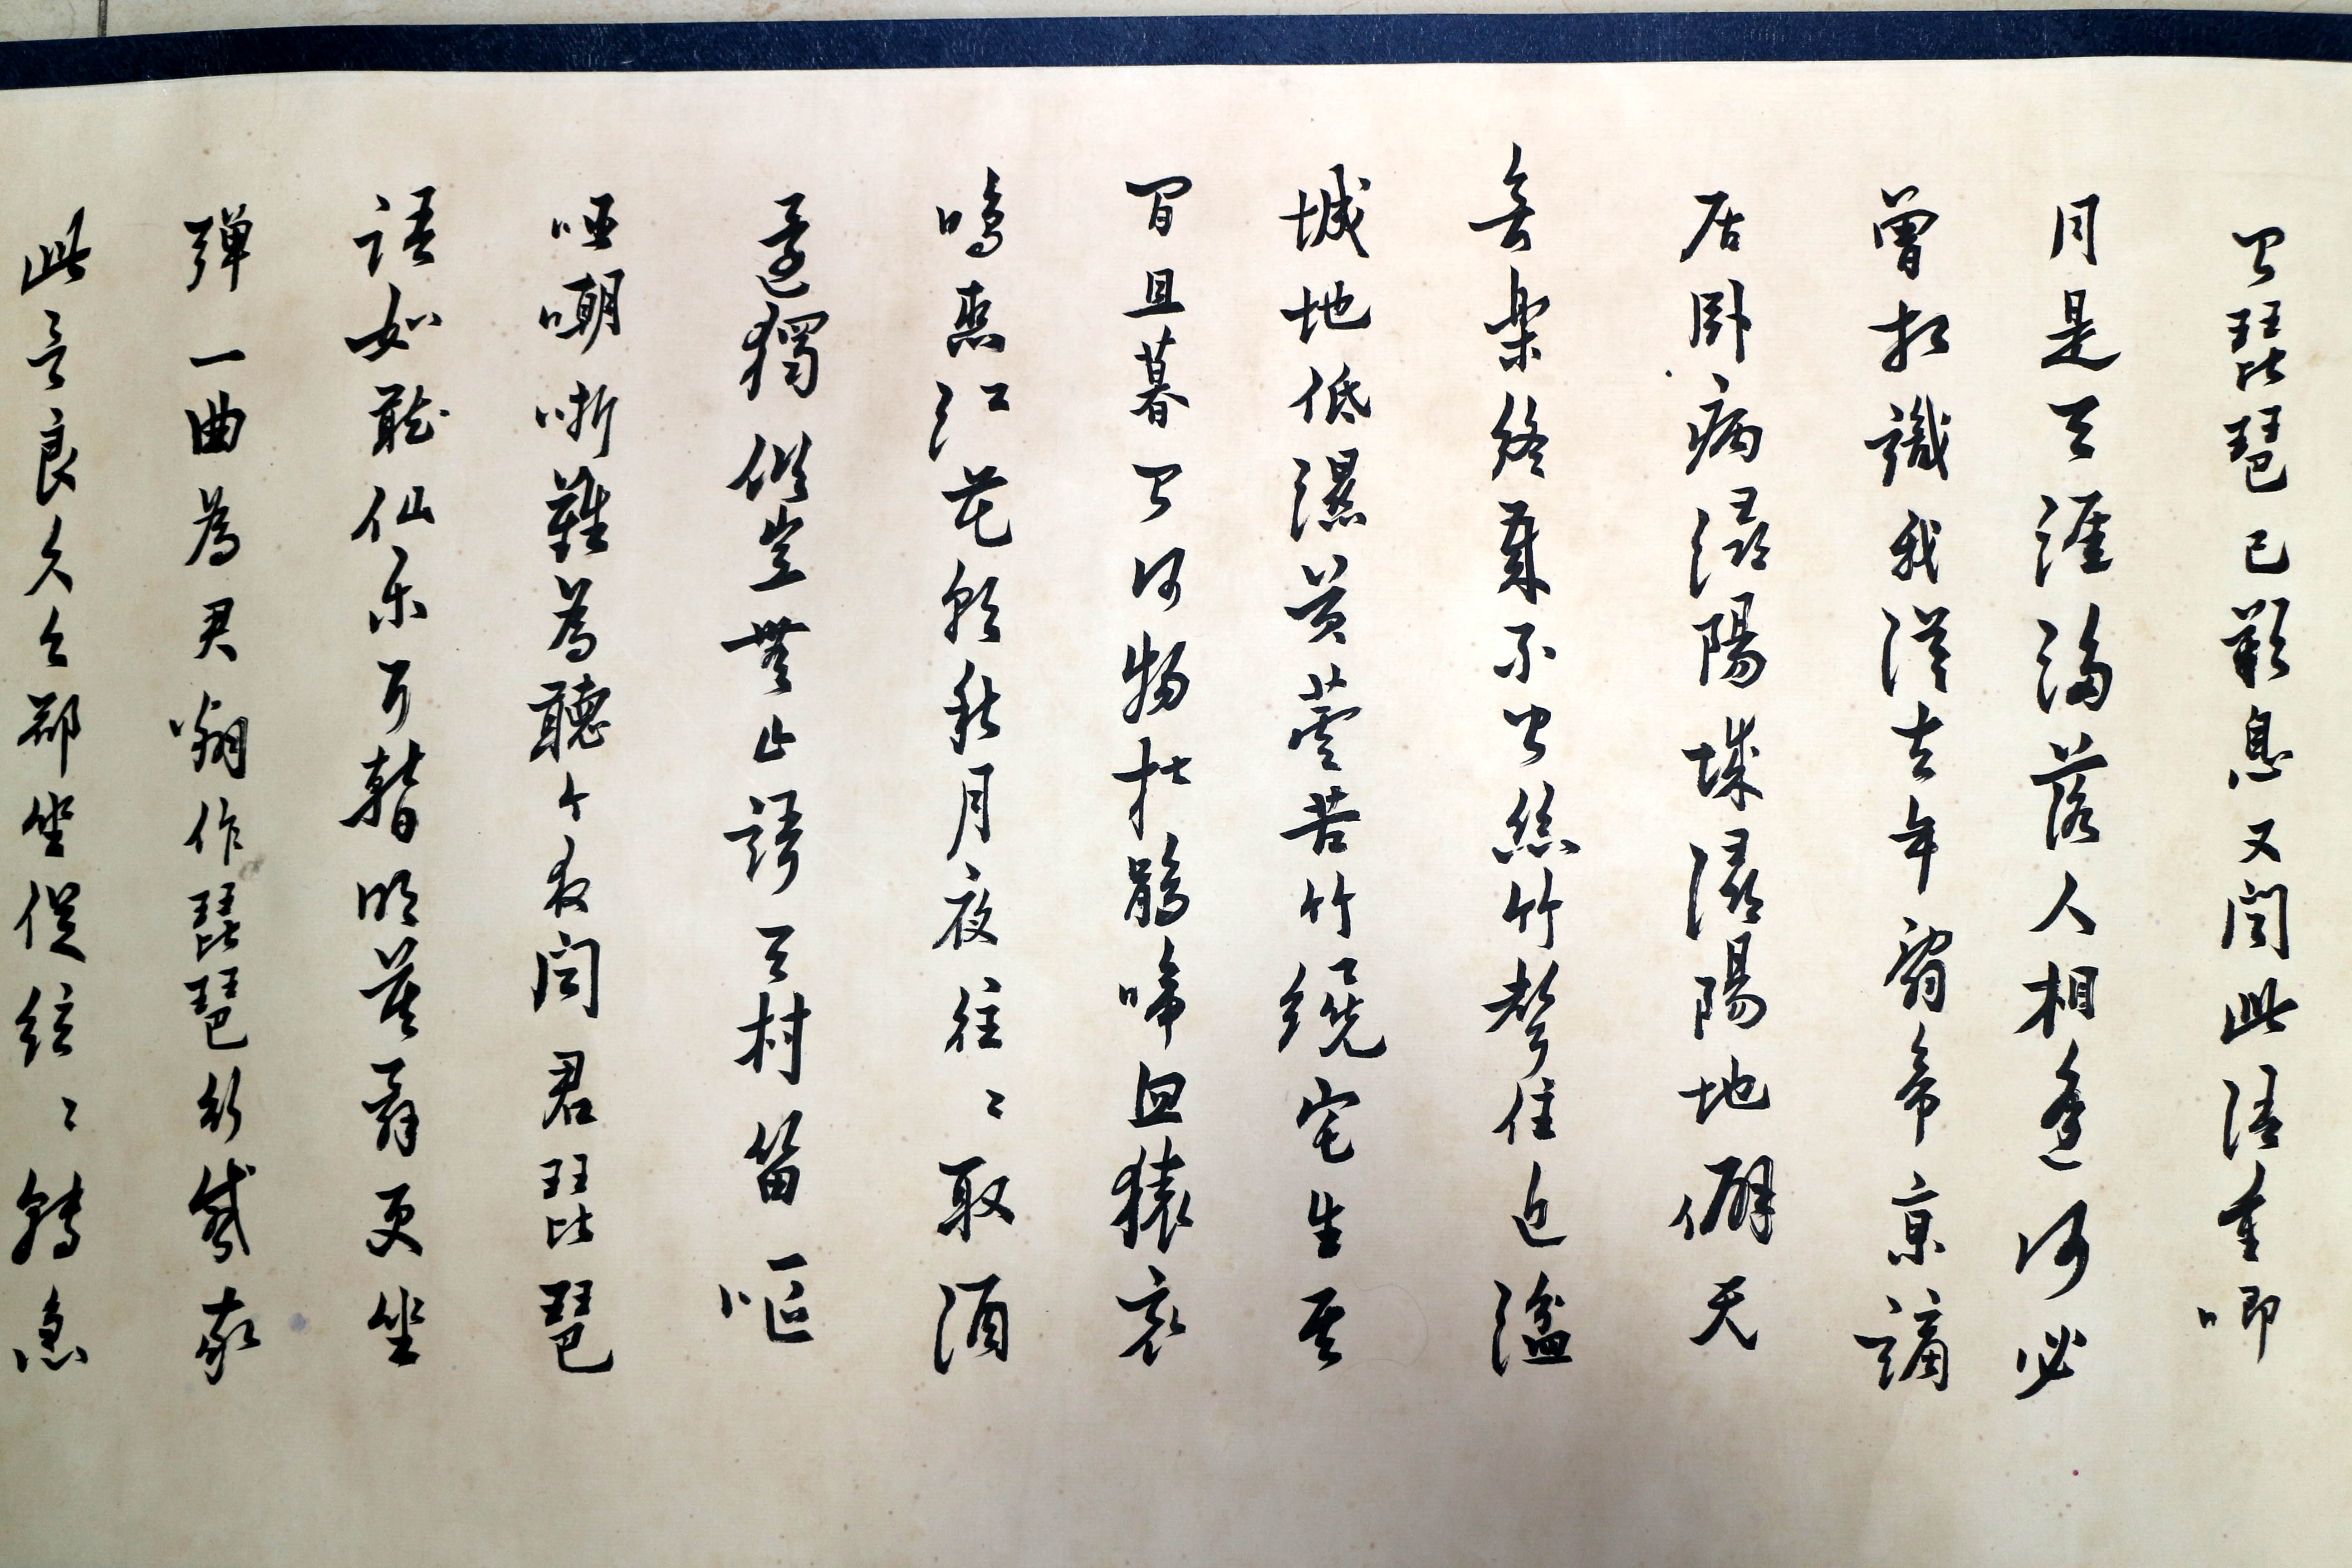 聞琵琶已歎息又聞此語重唧
同是天涯淪落人相逢何必
曾相識我從去年辭帝京謫
居臥病潯陽城潯陽地僻无
音樂終歲不聞絲竹聲住近湓
城地低濕黃蘆苦竹繞宅生其
間旦暮聞何物杜鵑啼血猿哀
鳴春江花朝秋月夜往〻取酒
還獨傾豈無山謌與村笛嘔
啞嘲哳難為聽今夜聞君琵琶
語如聽仙樂耳暫明莫辭更坐
彈一曲為君翻作琵琶行感我
此言良久立却坐促絃〻轉急